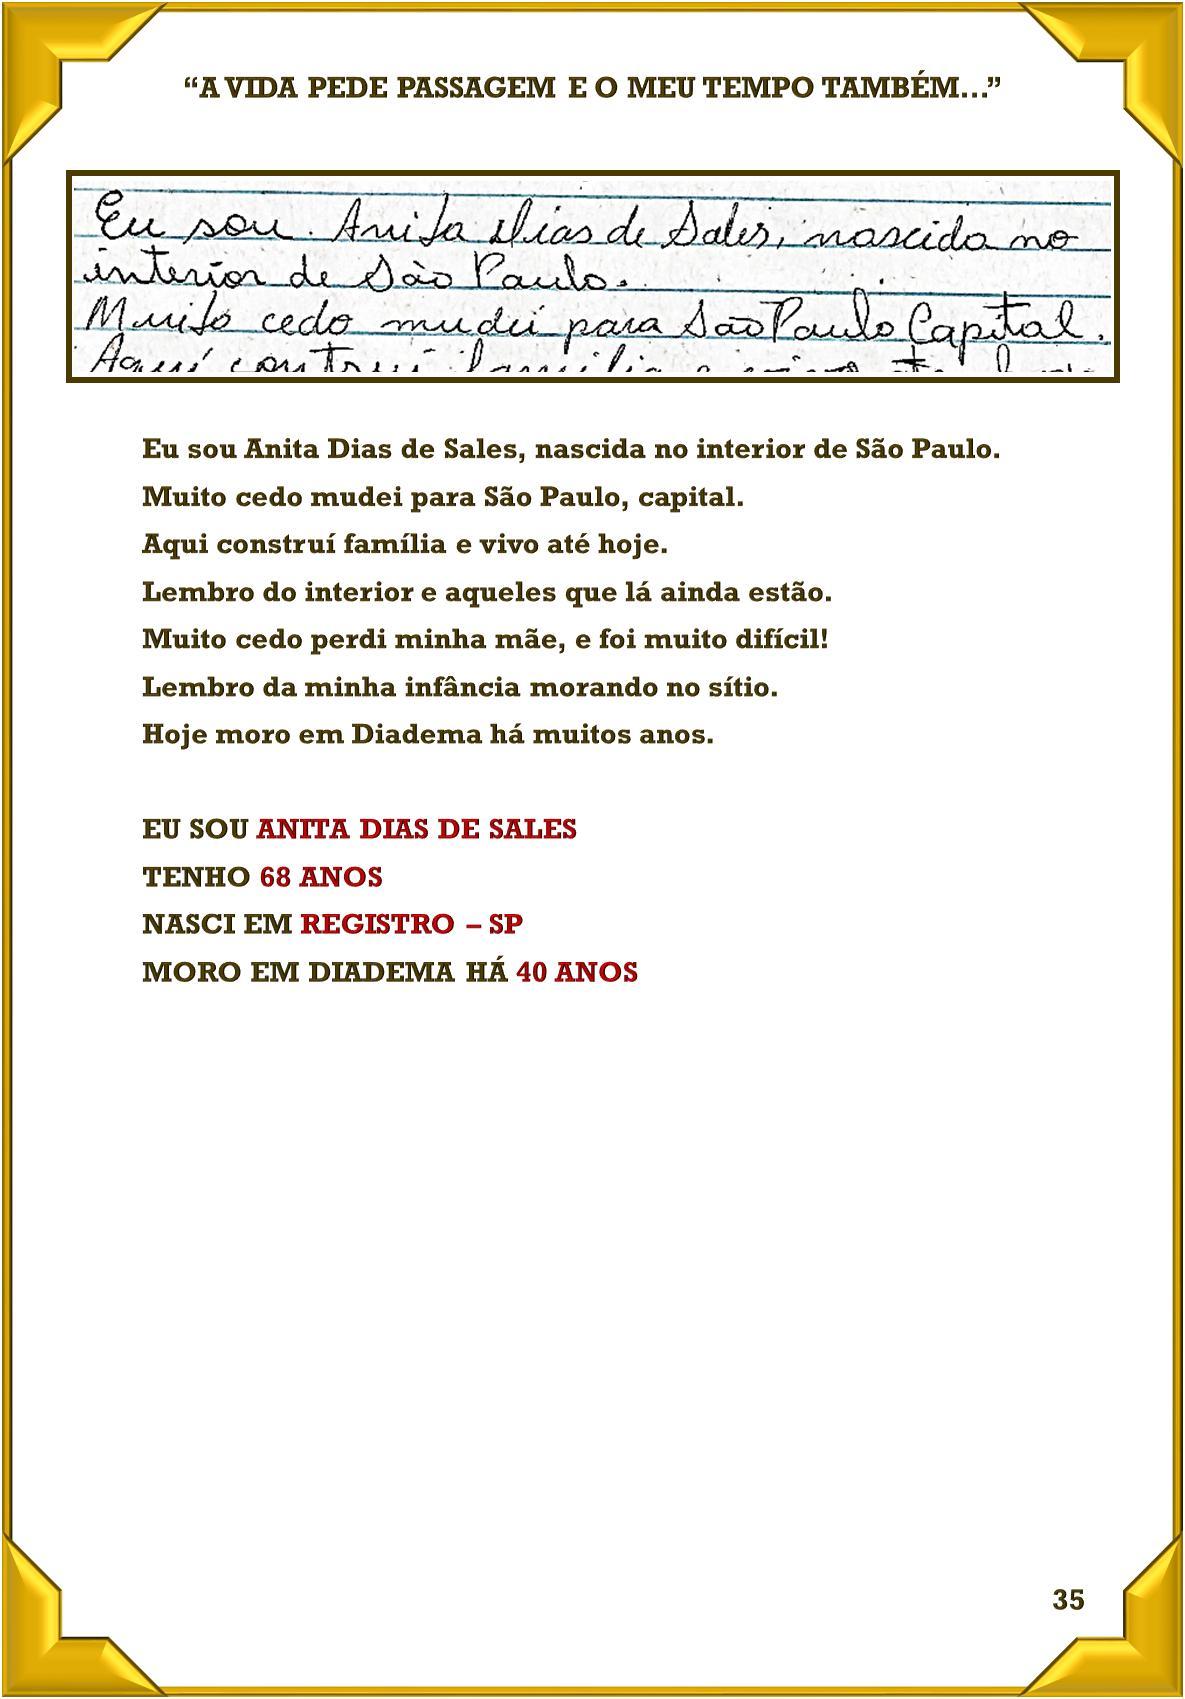 “A VIDA PEDE PASSAGEM E O MEU TEMPO TAMBÉM...”
Eu sou. Anita Dias de Sales, nascida no
interior de São Paulo.
Muito cedo mudei para São Paulo Capital.
Aqui construi família e vivo até hoje
Eu sou Anita Dias de Sales, nascida no interior de São Paulo.
Muito cedo mudei para São Paulo, capital.
Aqui construí família e vivo até hoje.
Lembro do interior e aqueles que lá ainda estão.
Muito cedo perdi minha mãe, e foi muito difícil!
Lembro da minha infância morando no sítio.
Hoje moro em Diadema há muitos anos.
EU SOU ANITA DIAS DE SALES
TENHO 68 ANOS
NASCI EM REGISTRO – SP
MORO EM DIADEMA HÁ 40 ANOS
35